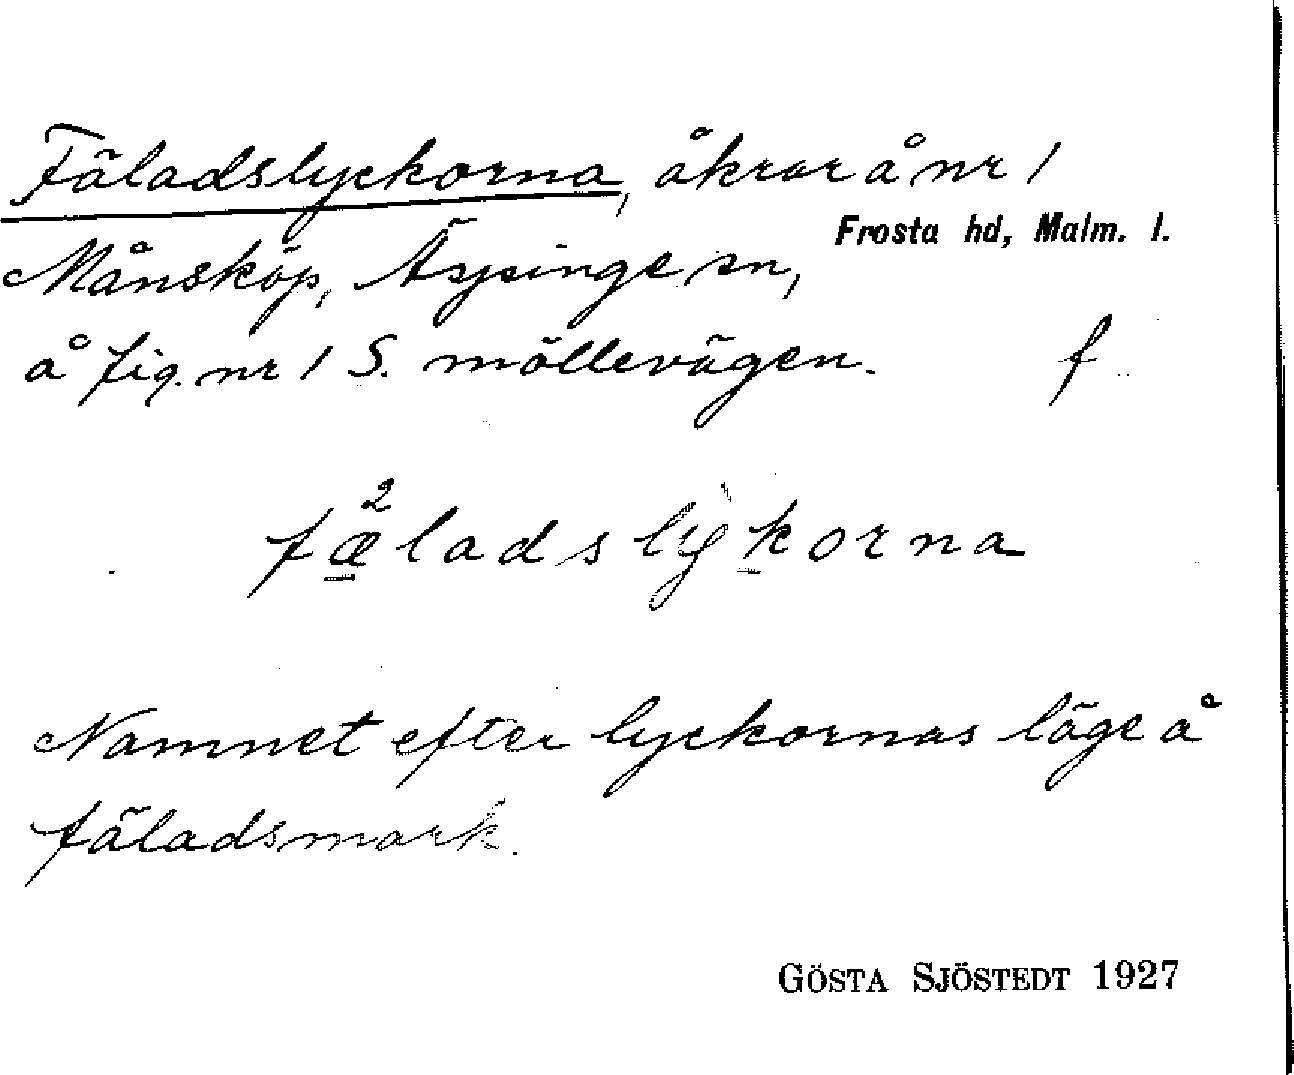 Fäladslyckorna, åkrar å nr 1
Frosta hd, Malm. l.
Månsköp, Äspinge sn,
å fig. nr 1 S. möllevägen. f
fæ²ladslykorna
Namnet efter lyckornas läge å
fäladsmark.
GÖSTA SJÖSTEDT 1927